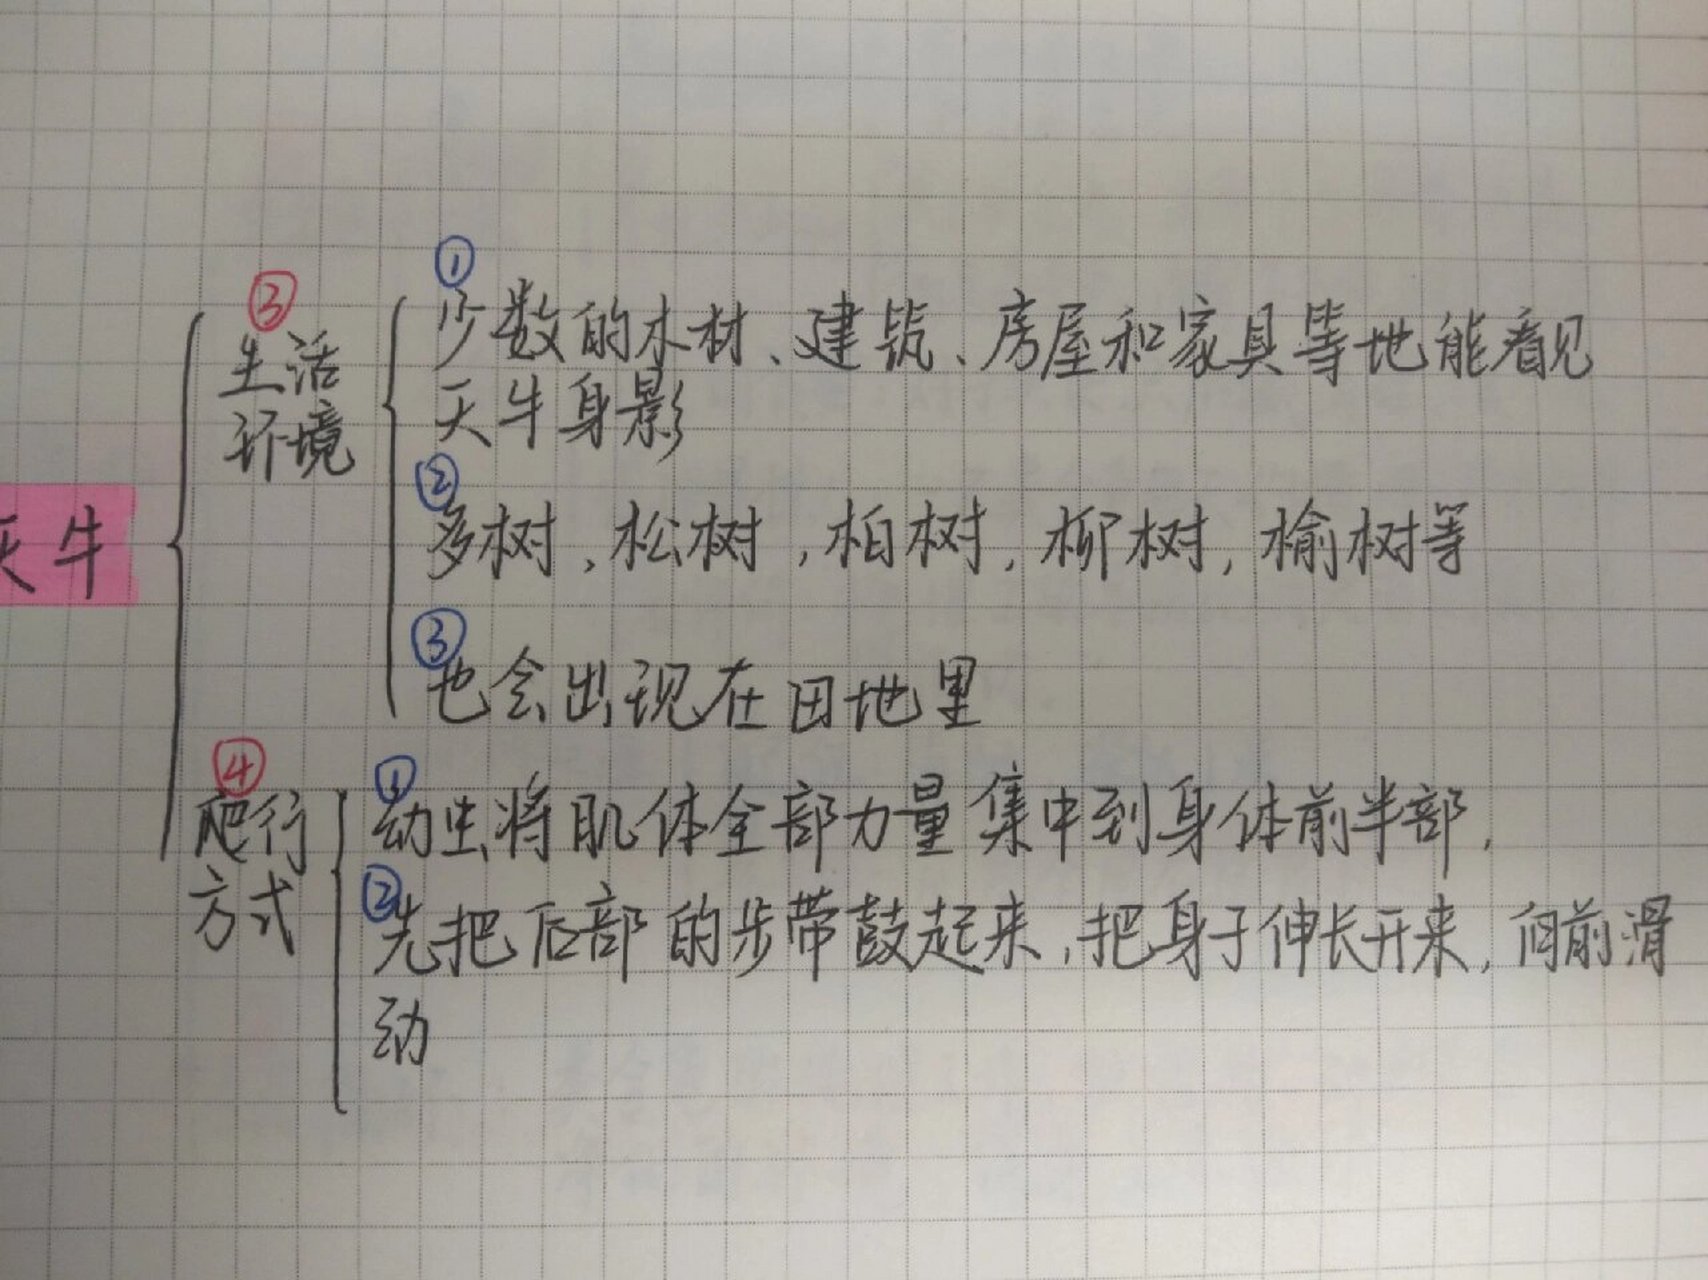 天牛
③
生活
环境
①
少数的木材、建筑、房屋和家具等地能看见
天牛身影
②
多树，松树，柏树，柳树，榆树等
③
也会出现在田地里
④
爬行
方式
①
幼虫将肌体全部力量集中到身体前半部，
②
先把后部的步带鼓起来，把身于伸长开来，向前滑
动